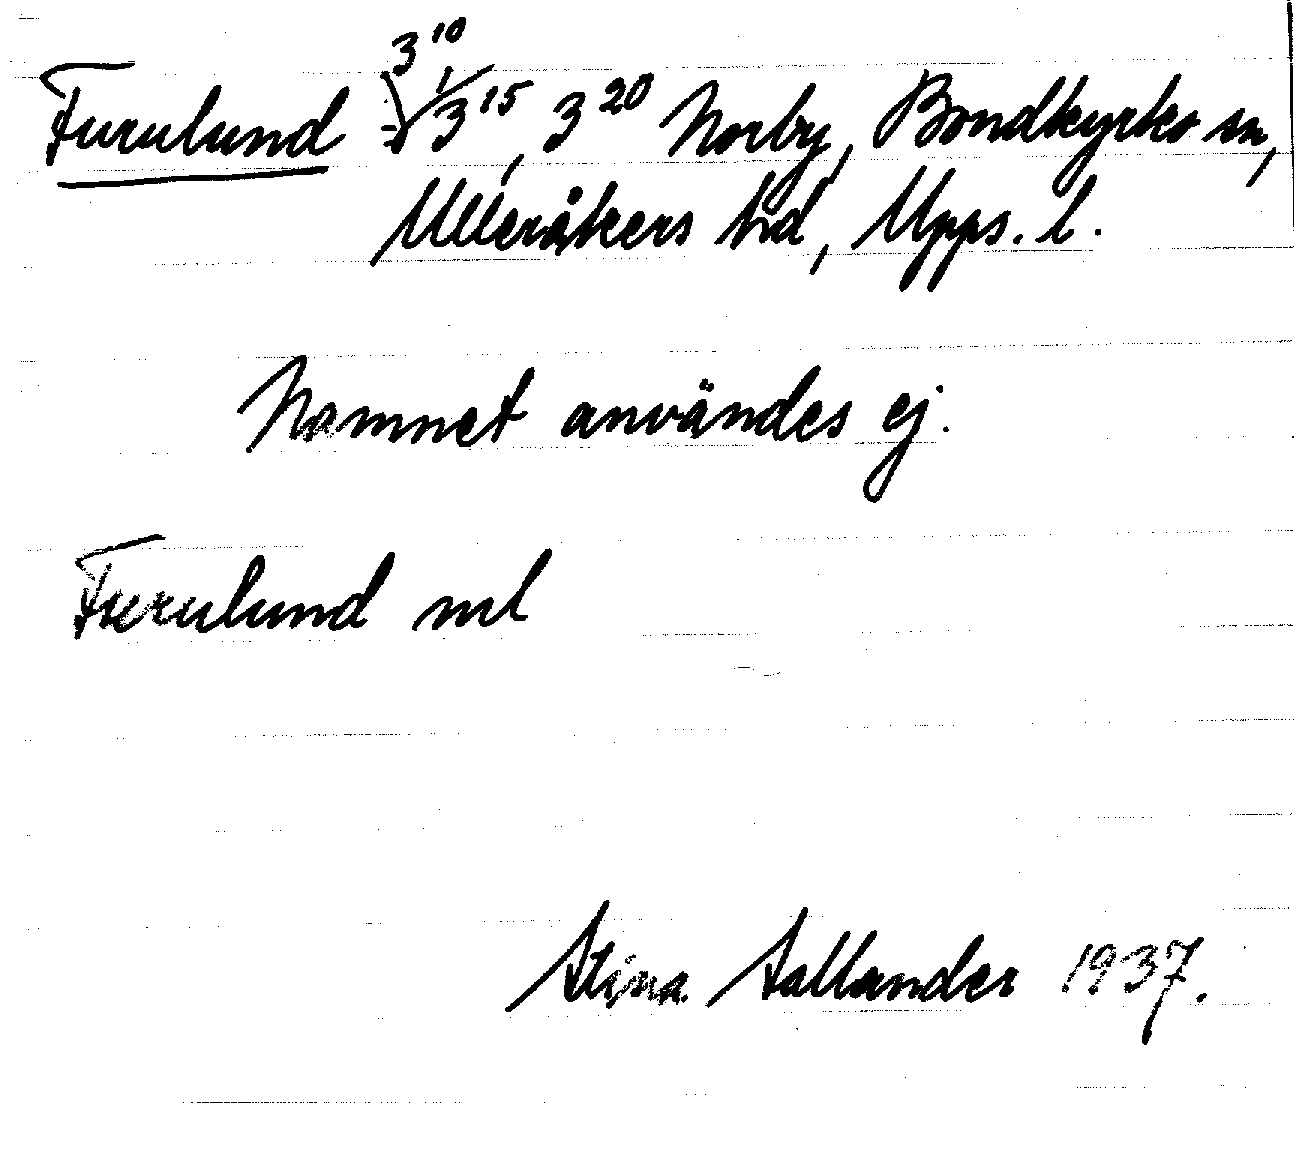 Furulund 3¹⁰, 3¹⁵, 3²⁰ Norby, Bondkyrko sn,
Ulleråkers hd, Upps. l.
Namnet användes ej.
Furulund ml
Stina Sallander 1937.